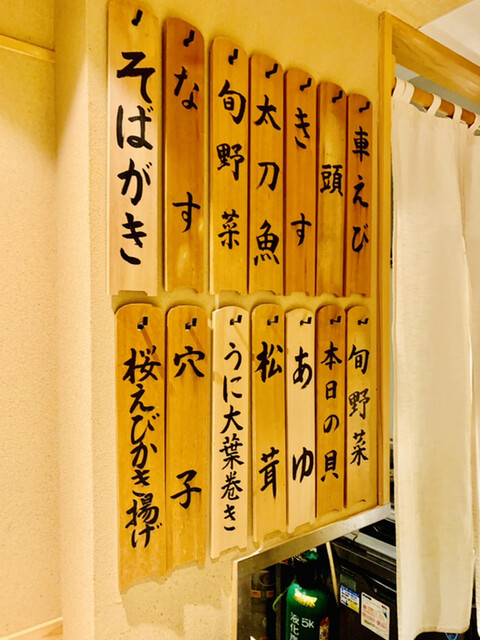 車えび
頭
きす
太刀魚
旬野菜
なす
そばがき
旬野菜
本日の貝
あゆ
松茸
うに大葉巻き
穴子
桜えびかき揚げ
5K
液化